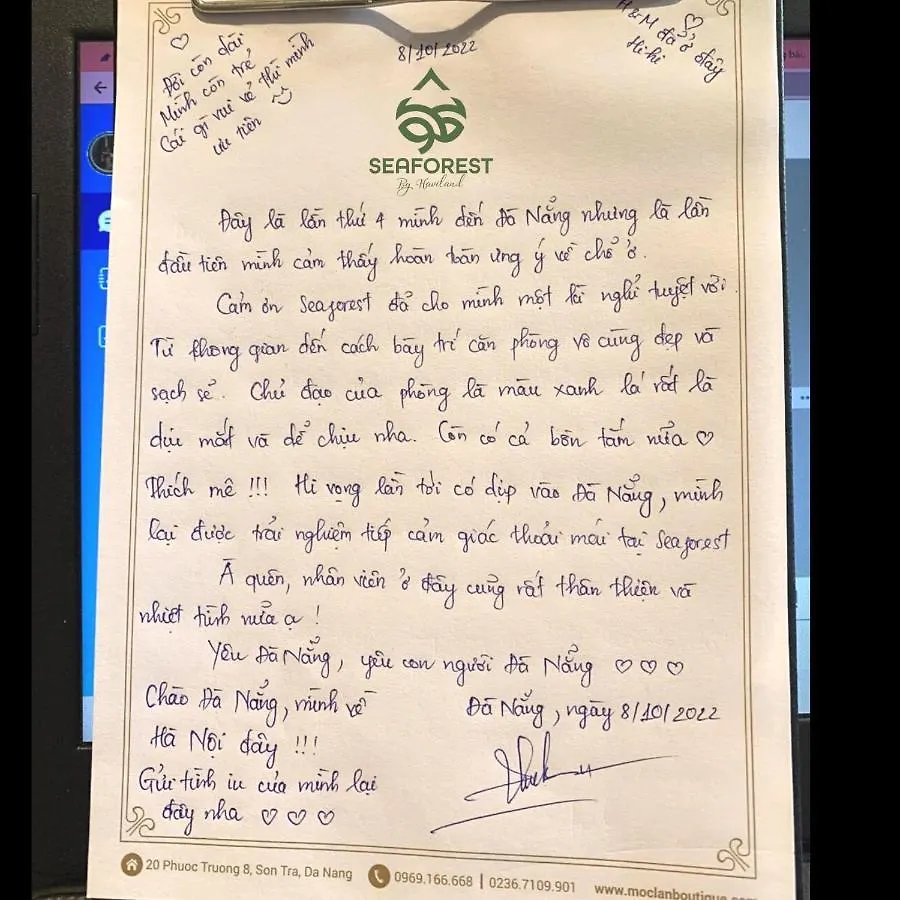 ♡
Đời còn dài
Mình còn trẻ
Cái gì vui vẻ thì mình
ưu tiên
8/10/2022
H&M đã ở đây
Hi-hi ♡
SEAFOREST
By Haviland
Đây là lần thứ 4 mình đến Đà Nẵng nhưng là lần
đầu tiên mình cảm thấy hoàn toàn ưng ý về chổ ở.
Cảm ơn Seaforest đã cho mình một kì nghỉ tuyệt vời.
Từ không gian đến cách bày trí căn phòng vô cùng đẹp và
sạch sẽ. Chủ đạo của phòng là màu xanh lá rất là
dịu mắt và dể chịu nha. Còn có cả bồn tắm nửa ♡
Thích mê !!! Hi vọng lần tới có dịp vào Đà Nẵng, mình
lại được trải nghiệm tiếp cảm giác thoải mái tại Seaforest
À quên, nhân viên ở đây cũng rất thân thiện và
nhiệt tình nửa ạ !
Yêu Đà Nẵng, yêu con người Đà Nẵng ♡ ♡ ♡
Chào Đà Nẵng, mình về
Hà Nội đây !!!
Gửi tình iu của mình lại
đây nha ♡ ♡ ♡
Đà Nẵng, ngày 8/10/2022
20 Phuoc Truong 8, Son Tra, Da Nang
0969.166.668 | 0236.7109.901
www.moclanboutique.com